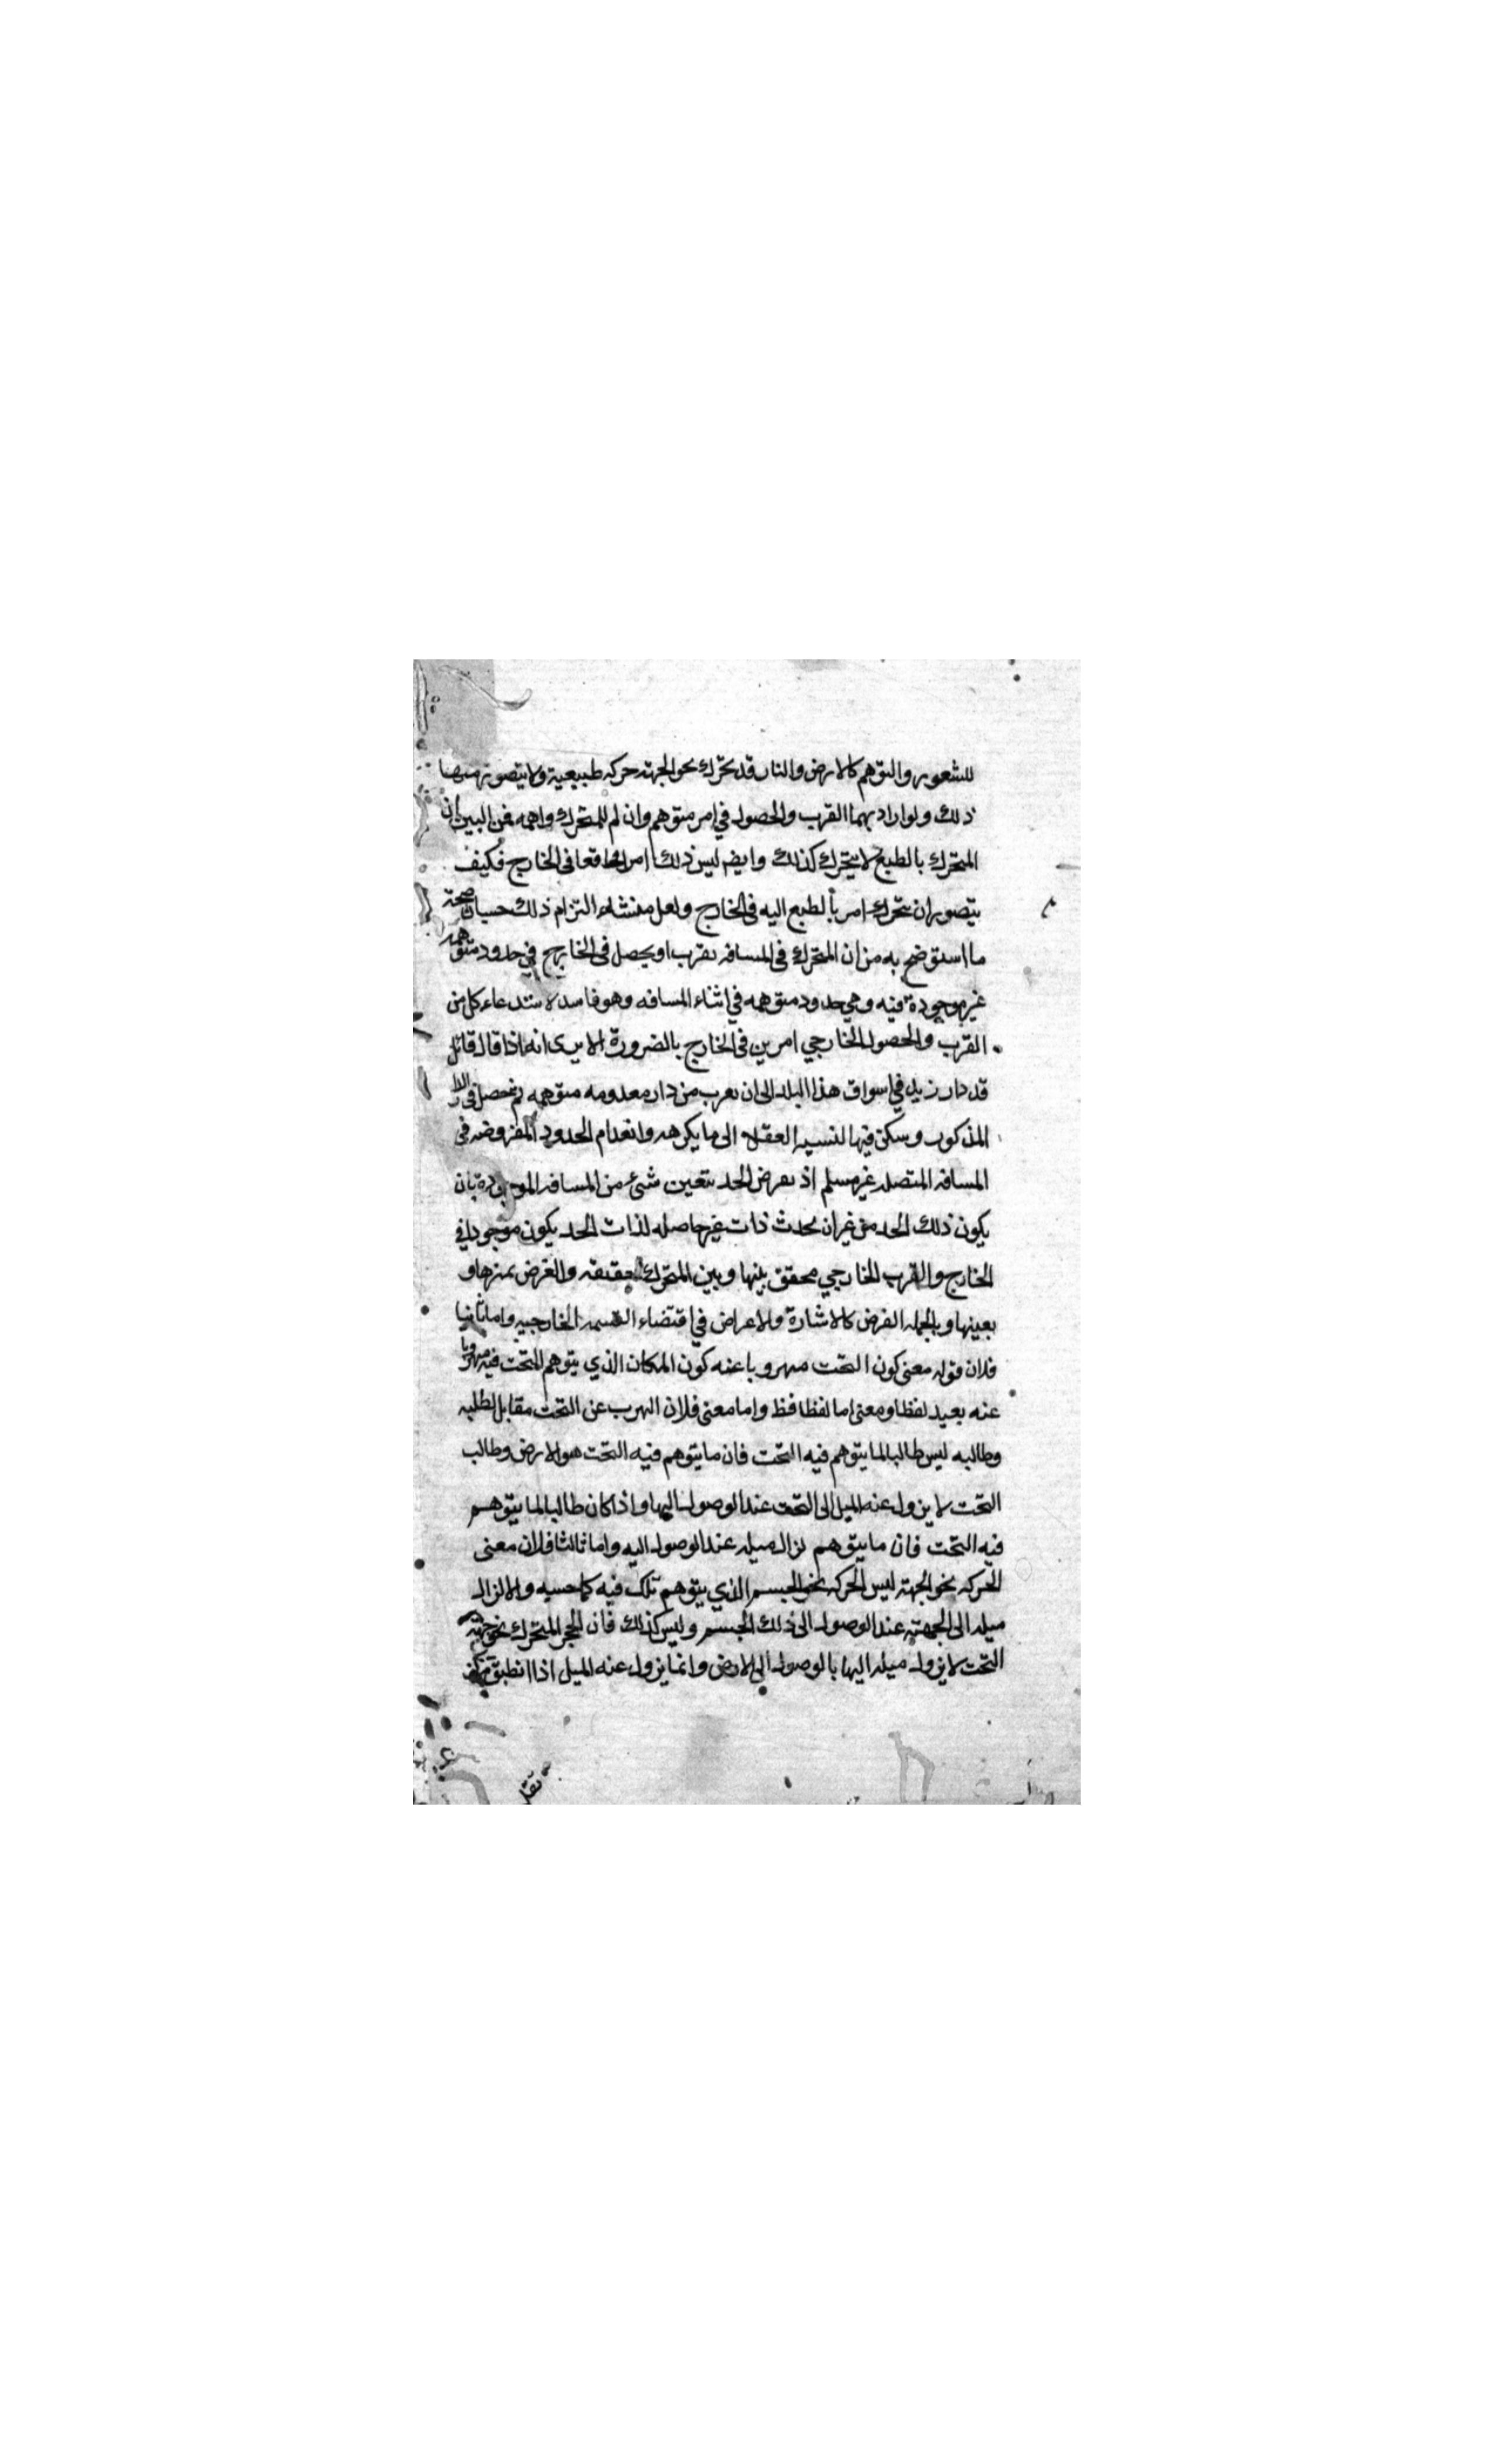 للشعور والتوهم كالارض والنار قد تحرك نحو الجهة حركه طبيعية ولا يتصور منهما
ذلك ولو اراد بهما القرب والحصول في امر متوهم وان لم للمتحرك واهمه فمن البين ان
المتحرك بالطبع لا يتحرك كذلك وايضا ليس ذلك امرا واقعا في الخارج فكيف
يتصور ان يتحرك امر بالطبع اليه في الخارج ولعل منشاء التزام ذلك حسبان صحة
ما استوضح به من ان المتحرك في المسافه يقرب او يحصل في الخارج في حدود متوهمه
غير موجودة فيه وهي حدود متوهمه في اثناء المسافه وهو فاسد لاستدعاء كل من
القرب والحصول الخارجي امرين في الخارج بالضرورة الا يرى انه اذا قال قائل
قد دار زيد في اسواق هذا البلد الى ان يقرب من دار معدومه متوهمه ثم حصل في الدار
المذكور وسكن فيها لنسبه العقلا الى ما يكرهه وانعدام الحدود المفروضه في
المسافه المتصله غير مسلم اذ بفرض الحد يتعين شئ من المسافه الموجودة بان
يكون ذلك الحد من غير ان يحدث ذات غير حاصله لذات الحد يكون موجودا في
الخارج والقرب الخارجي محقق بينها وبين المتحرك حقيقه والفرض يميزها و
يعينها وبالجمله الفرض كالاشارة والاعراض في اقتضاء القسمه الخارجيه واما ثانيا
فلان قوله معنى كون التحت مهروبا عنه كون المكان الذي يتوهم التحت فيه مهروبا
عنه بعيد لفظا ومعنى اما لفظا فظ واما معنى فلان الهرب عن التحت مقابل لطلبه
وطالبه ليس طالبا لما يتوهم فيه التحت فان ما يتوهم فيه التحت هو الارض وطالب
التحت لا يزول عنه الميل الى التحت عند الوصول اليها واذا كان طالبا لما يتوهم
فيه التحت فان ما يتوهم لزال ميله عند الوصول اليه واما ثالثا فلان معنى
الحركه نحو الجهة ليس الحركه نحو الجسم الذي يتوهم تلك فيه كما حسبه والا لزال
ميله الى الجهة عند الوصول الى ذلك الجسم وليس كذلك فان الحجر المتحرك نحو جهة
التحت لا يزول ميله اليها بالوصول الى الارض وانما يزول عنه الميل اذا انطبق مركز
ثقل